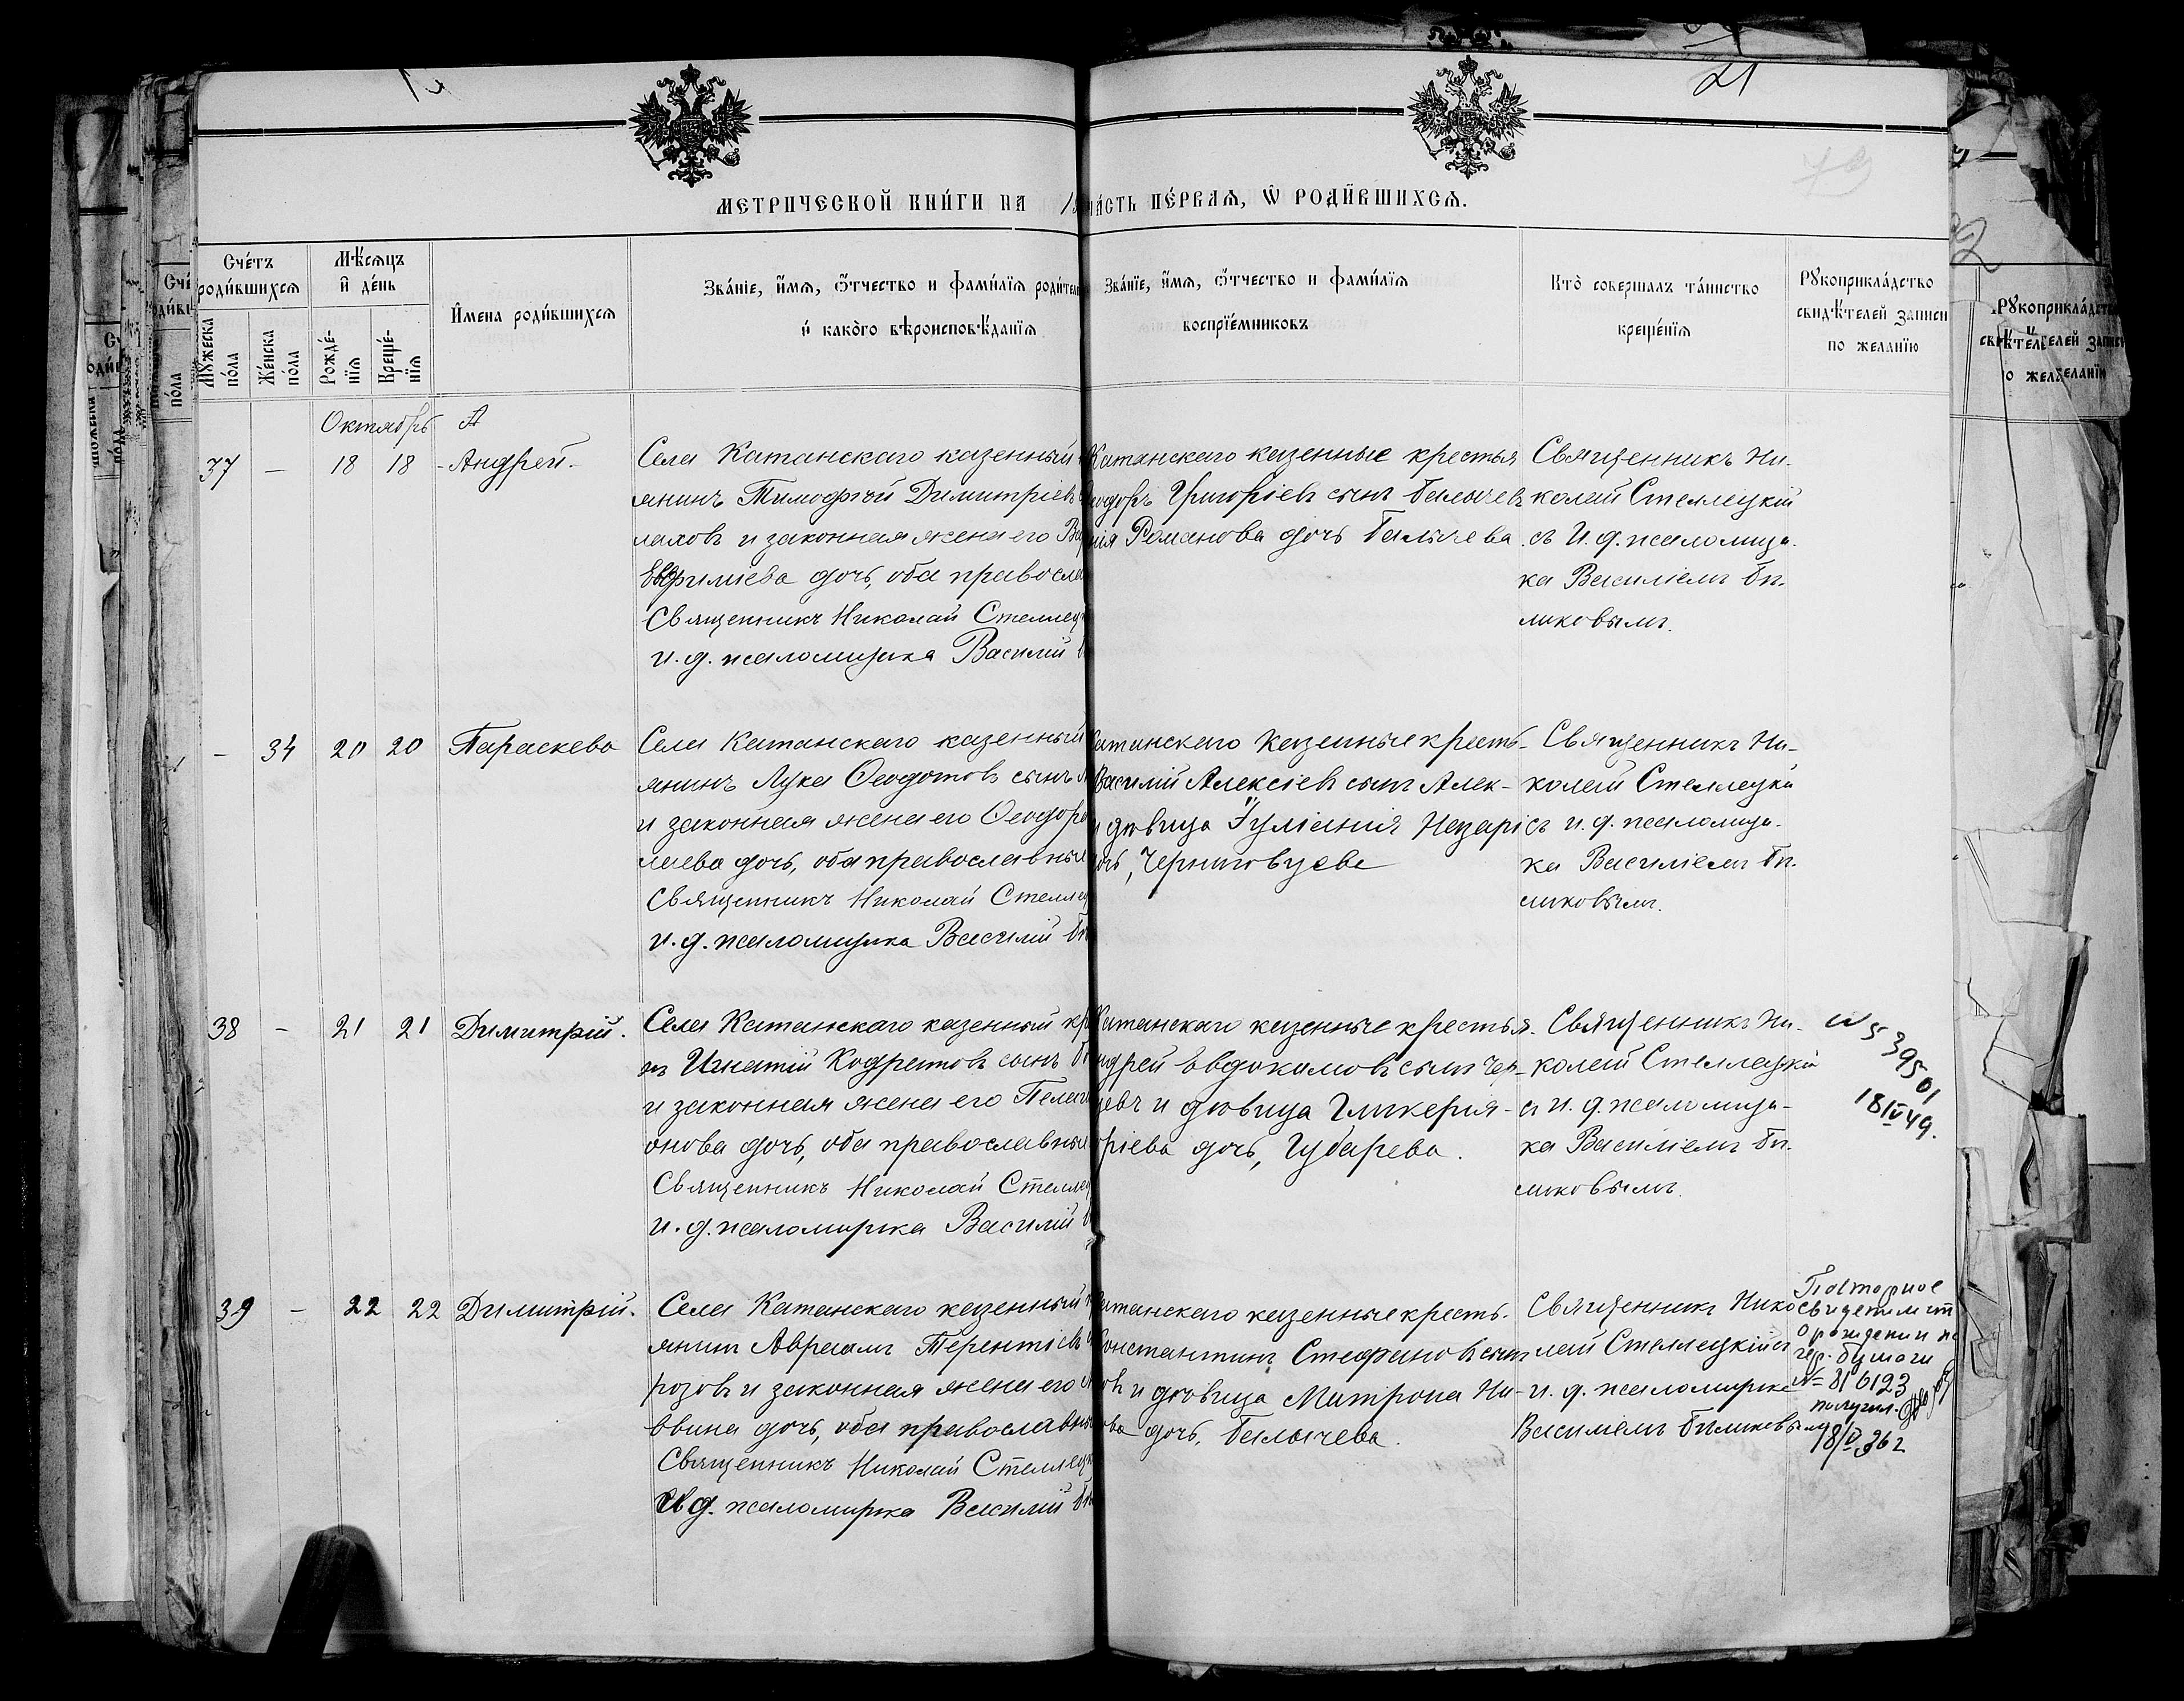 21
МЕТРИЧЕСКОЙ КНИ́ГИ НА
ЧА́СТЬ ПЕ́РВАѦ, Ѡ РОДИ́ВШИХСѦ.
Счéтъ роди́вшихсѧ
Мꙋ́жеска по́ла
Же́нска по́ла
Мѣ́сѧцъ и҆ де́нь
Рожде́нїѧ
Креще́нїѧ
И҆мена роди́вшихсѧ
Зва́нїе, и҆́мѧ, ѻ҆́тчество и фами́лїѧ роди́теле
и҆ како́гѡ вѣроисповѣ́данїѧ
Зва́нїе, и҆́мѧ, ѻ҆́тчество и фами́лїѧ
воспрїе́мниковъ
Кто̀ совершалъ та́инство
креще́нїѧ
Рꙋкоприкла́дство
свидѣ́телей записи
по желанїю
Октябрь
37 — 18 18 Андрей.
Села Катанскаго казенный
янинъ Тимофѣй Димитріевъ
лаховъ и законная жена его
Евфиміева дочь, оба правосла
Священникъ Николай Стеллец
и. д. псаломщика Василій
Катанскаго казенные крестья
еодоръ Григоріевъ сынъ Балычевъ
нія Романова дочь Балычева.
Священникъ Ни-
колай Стеллецкій
съ И. д. псаломщи-
ка Василіемъ Би-
ликовымъ.
— 34 20 20 Параскева
Села Катанскаго казенный
янинъ Лука Ѳеодотовъ сынъ
и законная жена его Ѳеодор
лаева дочь, оба православные
Священникъ Николай Стеллец
и. д. псаломщика Василій Би
Катанскаго казенные кресть-
Василій Алексіевъ сынъ Алек-
и дѣвица Іуліанія Назарі
очь, Черниговцева
Священникъ Ни-
колай Стеллецкій
съ и. д. псаломщи-
ка Василіемъ Би-
ликовымъ.
38 — 21 21 Димитрій.
Села Катанскаго казенный кр
нъ Игнатій Кодратовъ сынъ
и законная жена его Пелаг
онова дочь, оба православные
Священникъ Николай Стеллец
и. д. псаломщика Василій
Катанскаго казенные крестья-
ндрей Евдокимовъ сынъ Чер-
цевъ и дѣвица Гликерія
оріева дочь, Губарева.
Священникъ Ни-
колай Стеллецкій
съ и. д. псаломщи-
ка Василіемъ Би-
ликовымъ.
№ 539501
18/IV 49.
39 — 22 22 Димитрій.
Села Катанскаго казенный
янинъ Авраамъ Терентіевъ
розовъ и законная жена его
ввина дочь, оба православны
Священникъ Николай Стеллец
И д. псаломщика Василій Би
Катанскаго казенные кресть-
Константинъ Стефановъ сынъ
овъ и дѣвица Матрона Ни-
ова дочь, Балычева.
Священникъ Нико
лай Стеллецкій съ
и. д. псаломщика
Василіемъ Биликовымъ
Повторное
свидетельст
о рождении на
гер. бумаги
№ 810123
получил.
18/V 36 г